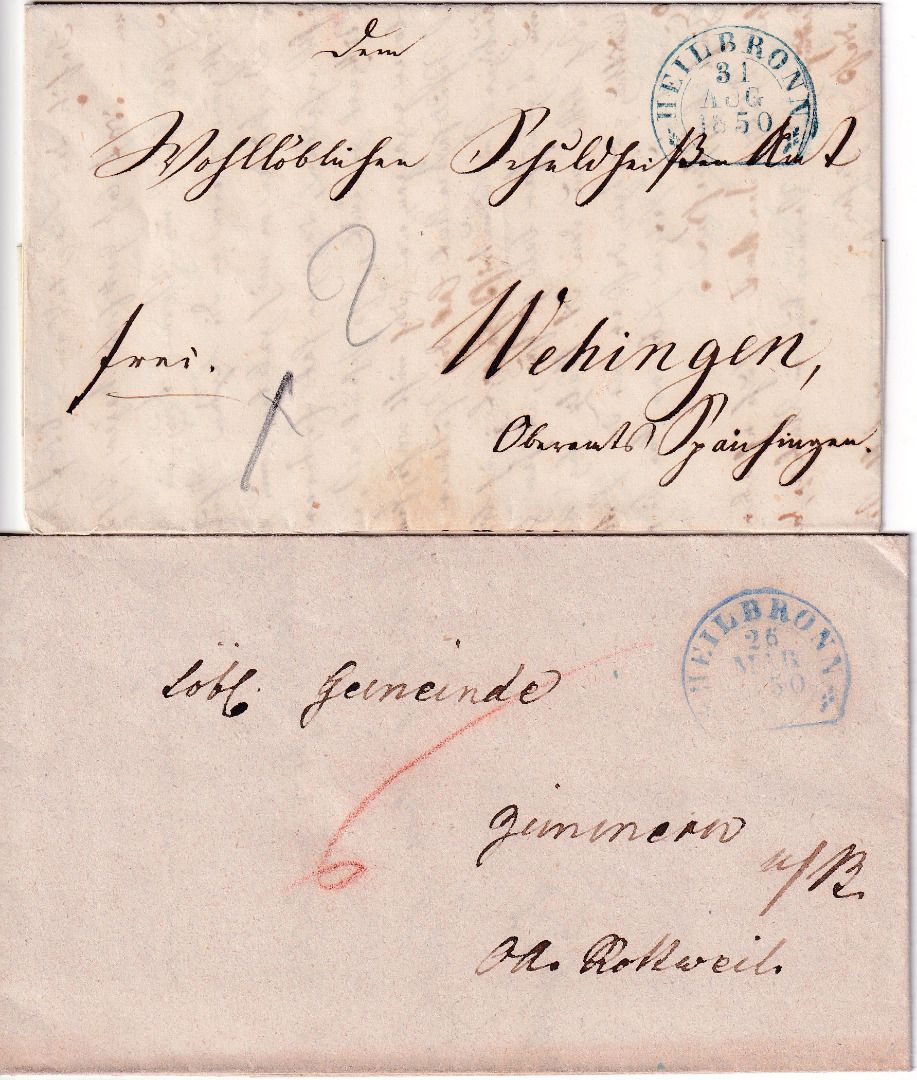 Dem
HEILBRONN
31
AUG
1850
Wohllöblichen Schuldheißen Amt
2
frei.
Wehingen,
Oberamts Spaichingen.
HEILBRONN
26
MÄR
50
Löbl. Gemeinde
6
Zimmern
u/B.
OA. Rottweil.